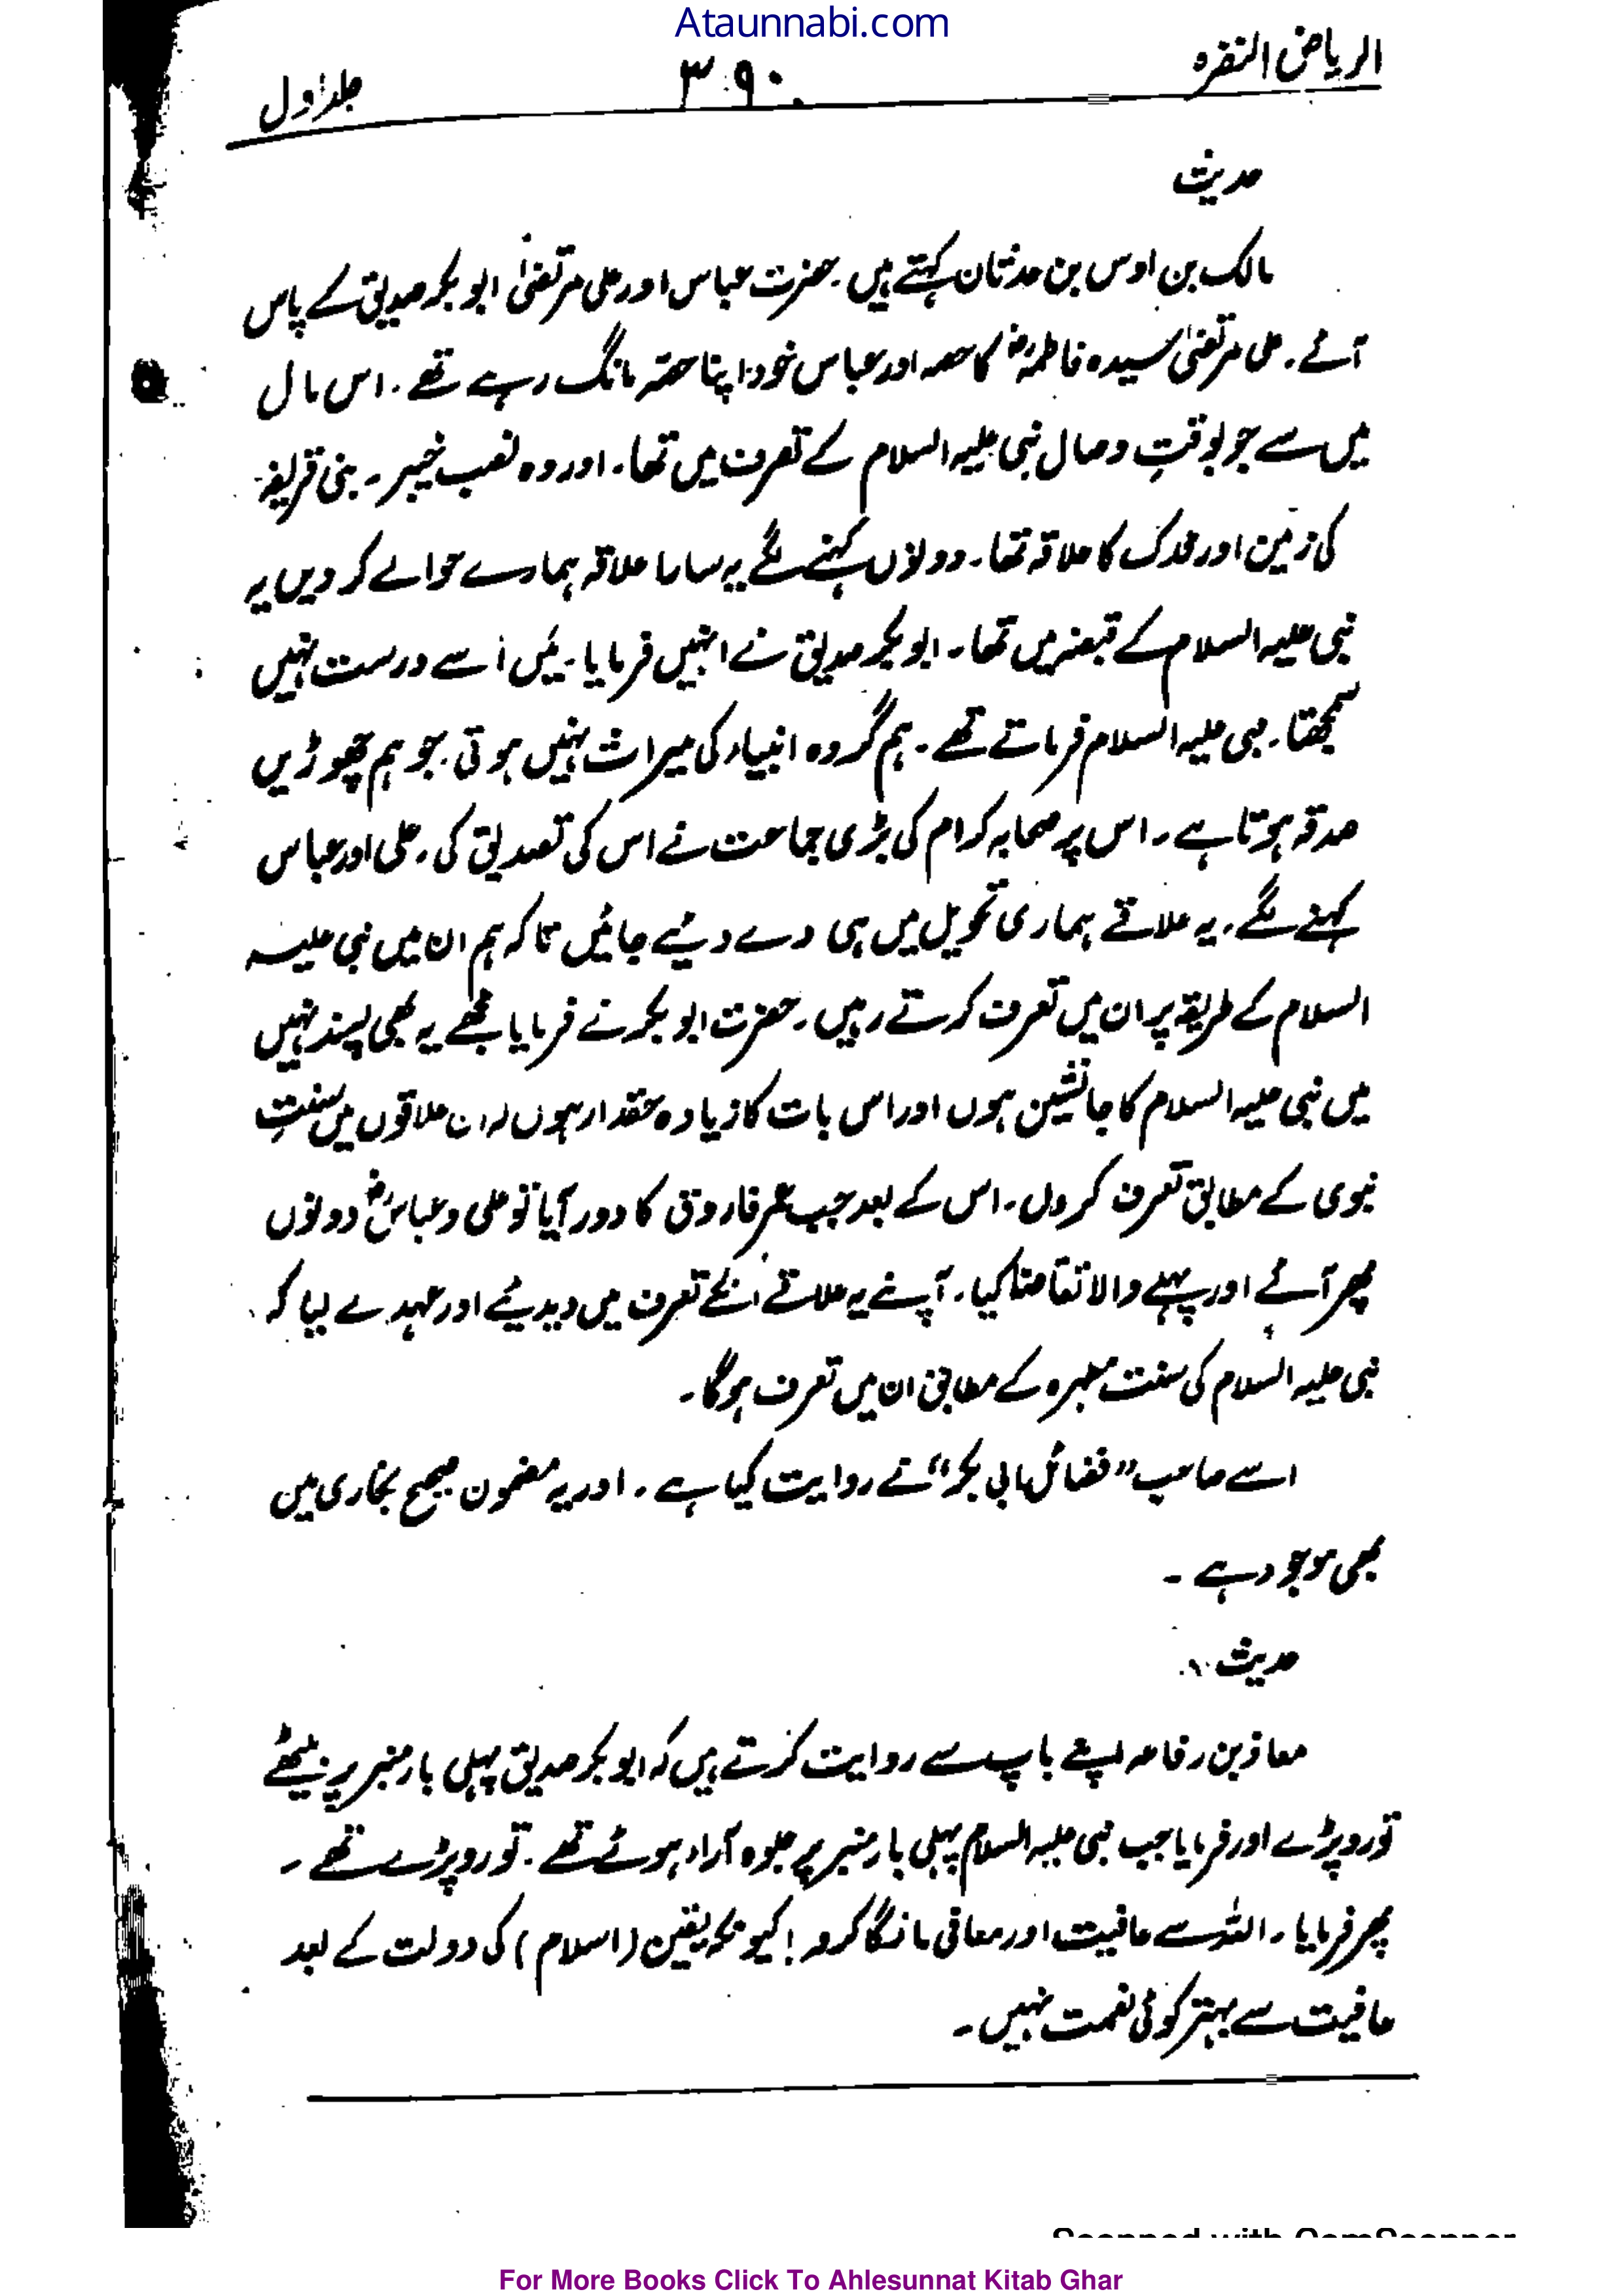 Ataunnabi.com
الریاض النضرہ
۳۹۰
جلد اول
حدیث
مالک بن اوس بن حدثان کہتے ہیں۔ حضرت عباس اور علی مرتضیٰ ابو بکر صدیق کے پاس
آئے۔ علی مرتضیٰ سیدہ فاطمہؓ کا حصہ اور عباس خود اپنا حصّہ مانگ رہے تھے۔ اس مال
میں سے جو بوقتِ وصال نبی علیہ السلام کے تصرف میں تھا۔ اور وہ نصب خیبر۔ بنی قریظہ
کی زمین اور فدک کا علاقہ تھا۔ دونوں کہنے لگے یہ سارا علاقہ ہمارے حوالے کر دیں یہ
نبی علیہ السلام کے قبضہ میں تھا۔ ابو بکر صدیق نے انہیں فرمایا۔ میں اسے درست نہیں
سمجھتا۔ نبی علیہ السلام فرماتے تھے۔ ہم گروہ انبیاء کی میراث نہیں ہوتی۔ جو ہم چھوڑیں
صدقہ ہوتا ہے۔ اس پر صحابہ کرام کی بڑی جماعت نے اس کی تصدیق کی۔ علی اور عباس
کہنے لگے۔ یہ علاقے ہماری تحویل میں ہی دے دیئے جائیں تاکہ ہم ان میں نبی علیہ
السلام کے طریقہ پر ان میں تصرف کرتے رہیں۔ حضرت ابو بکر نے فرمایا مجھے یہ بھی پسند نہیں
میں نبی علیہ السلام کا جانشین ہوں اور اس بات کا زیادہ حقدار ہوں کہ ان علاقوں میں سنتِ
نبوی کے مطابق تصرف کروں۔ اس کے بعد جب عمر فاروق کا دور آیا تو علی و عباسؓ دونوں
پھر آئے اور پہلے والا تقاضا کیا۔ آپ نے یہ علاقے انکے تصرف میں دیدیئے اور عہد لے لیا کہ
نبی علیہ السلام کی سنت مطہرہ کے مطابق ان میں تصرف ہوگا۔
اسے صاحب "فضائل ابی بکر" نے روایت کیا ہے۔ اور یہ مضمون صحیح بخاری میں
بھی موجود ہے۔
حدیث
معاذ بن رفاعہ اپنے باپ سے روایت کرتے ہیں کہ ابو بکر صدیق پہلی بار منبر پر بیٹھے
تو رو پڑے اور فرمایا جب نبی علیہ السلام پہلی بار منبر پر جلوہ آراء ہوئے تھے۔ تو رو پڑے تھے۔
پھر فرمایا۔ اللہ سے عافیت اور معافی مانگا کرو! کیونکہ یقین (اسلام) کی دولت کے بعد
عافیت سے بہتر کوئی نعمت نہیں۔
Scanned with CamScanner
For More Books Click To Ahlesunnat Kitab Ghar